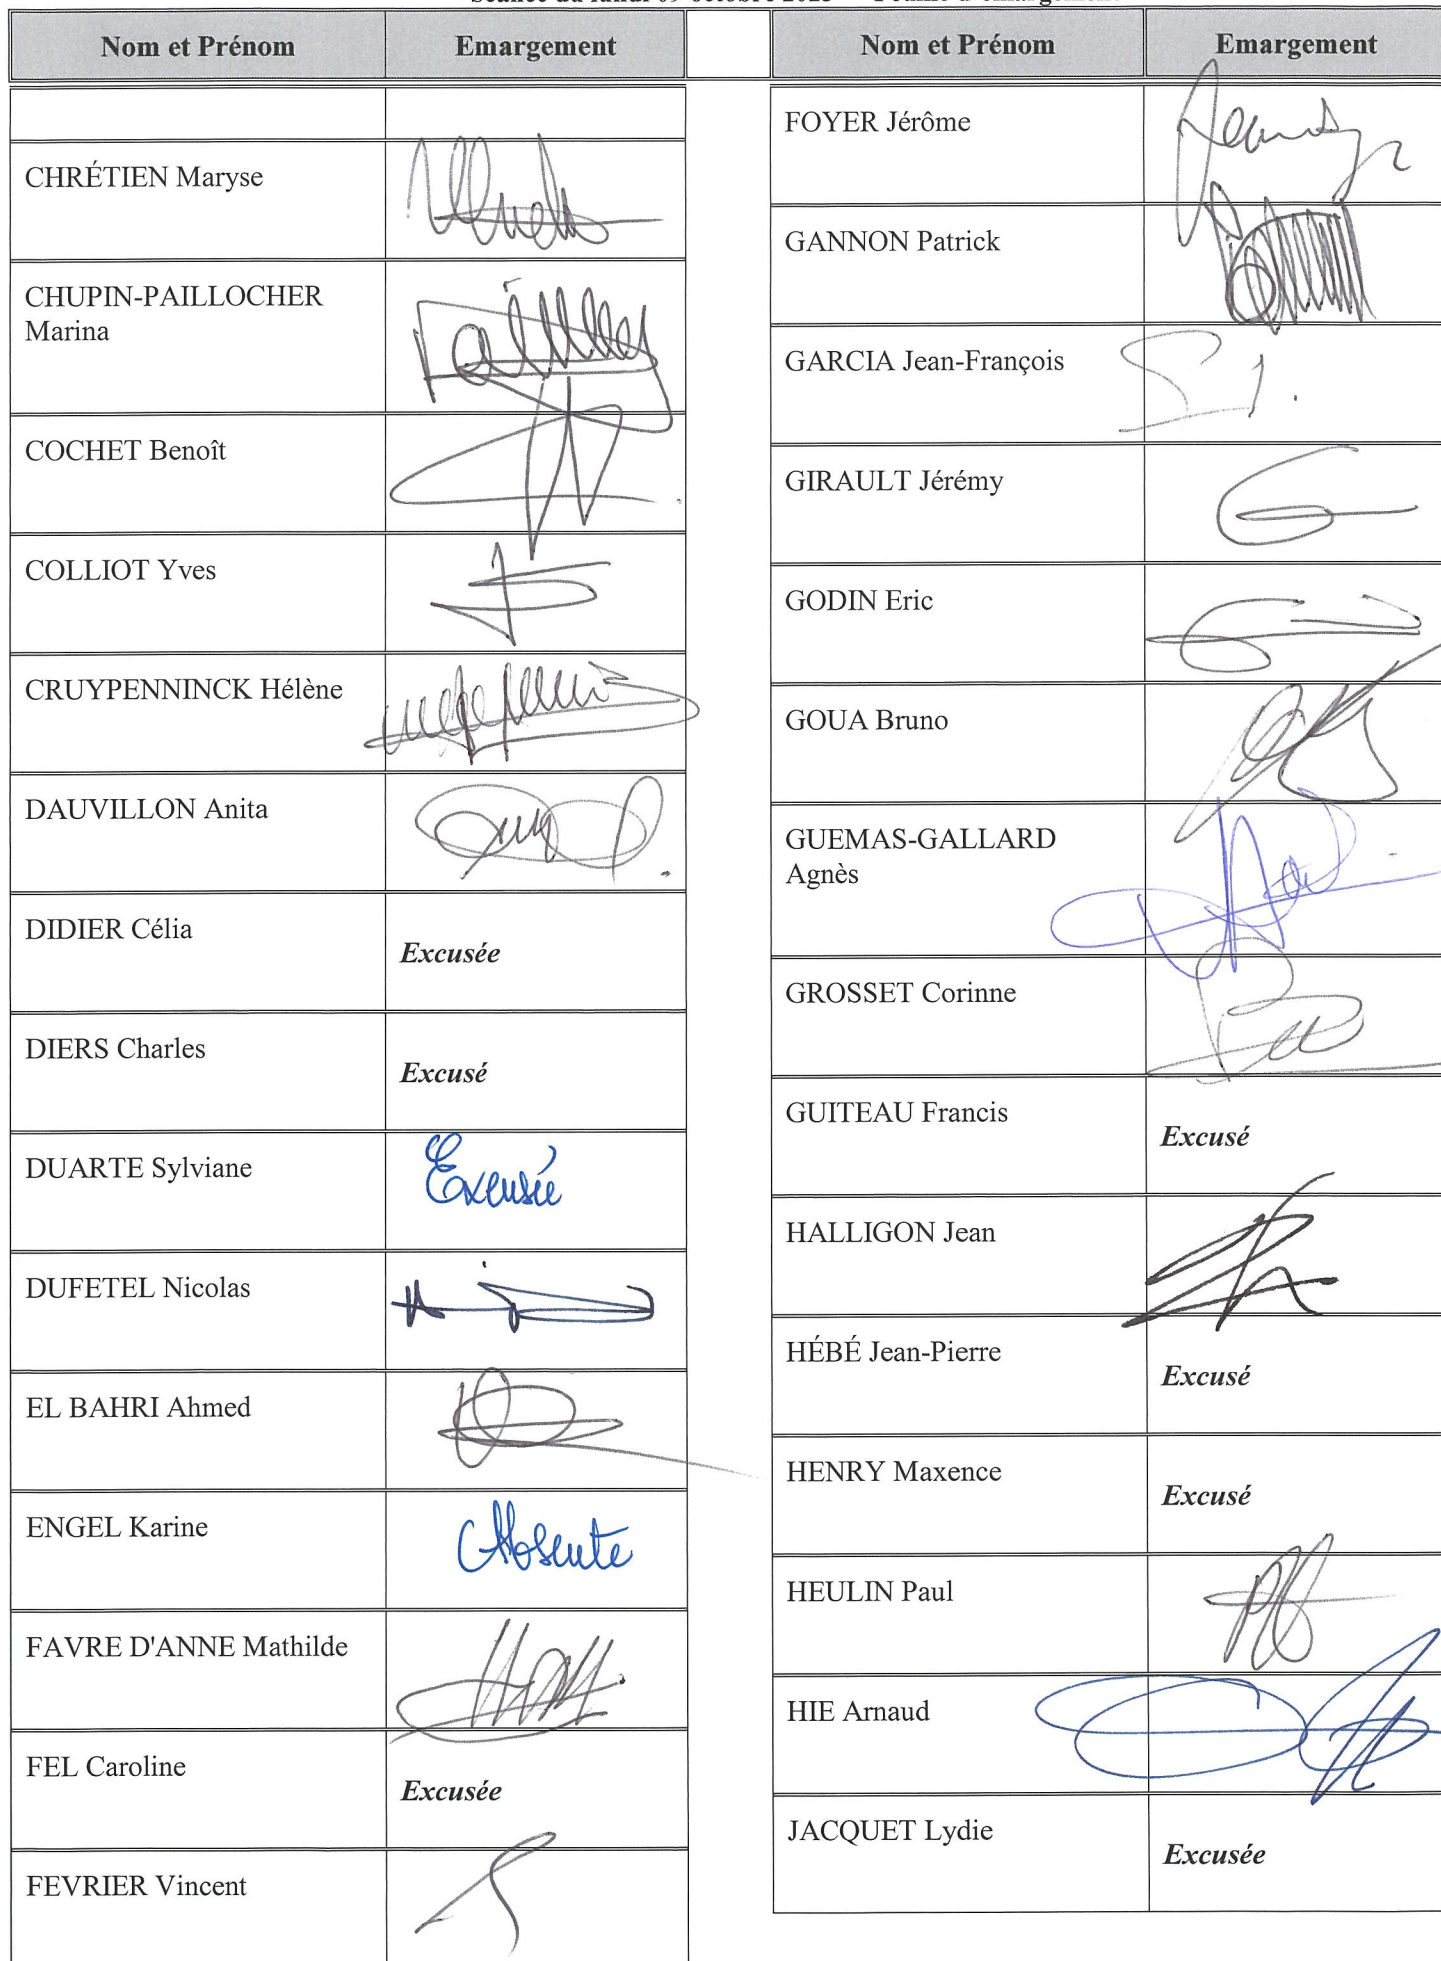 séance du lundi 09 octobre 2023
Nom et Prénom Emargement
CHRÉTIEN Maryse
CHUPIN-PAILLOCHER
Marina
COCHET Benoît
COLLIOT Yves
CRUYPENNINCK Hélène
DAUVILLON Anita
DIDIER Célia
Excusée
DIERS Charles
Excusé
DUARTE Sylviane
Excusée
DUFETEL Nicolas
EL BAHRI Ahmed
ENGEL Karine
Absente
FAVRE D'ANNE Mathilde
FEL Caroline
Excusée
FEVRIER Vincent
Nom et Prénom Emargement
FOYER Jérôme
GANNON Patrick
GARCIA Jean-François
GIRAULT Jérémy
GODIN Eric
GOUA Bruno
GUEMAS-GALLARD
Agnès
GROSSET Corinne
GUITEAU Francis
Excusé
HALLIGON Jean
HÉBÉ Jean-Pierre
Excusé
HENRY Maxence
Excusé
HEULIN Paul
HIE Arnaud
JACQUET Lydie
Excusée